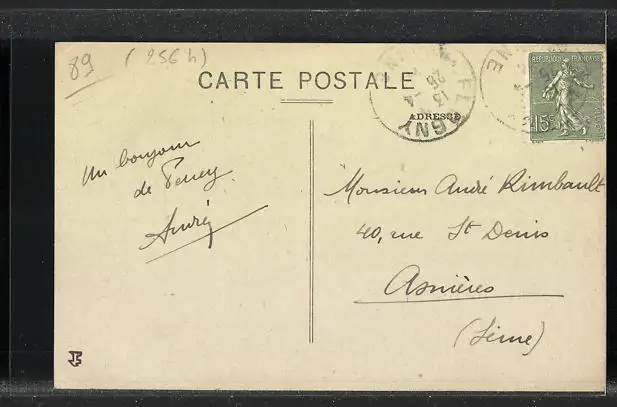 89
(256 h)
CARTE POSTALE
ADRESSE
REPUBLIQUE FRANÇAISE
15c
FLOGNY
13 -4
Un bonjour
de Percey
André
Monsieur André Rimbault
40, rue St Denis
Asnières
(Seine)